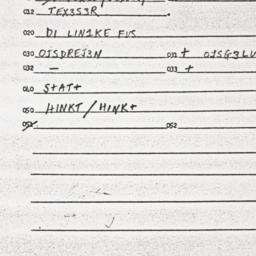 012 TEX3S3R
020 DI LIN1KE FUS
030 OJSDREJ3N 031 + OJSG3LU
032 — 033 +
040 S+AT+
050 HINKT / HINK+
051 052